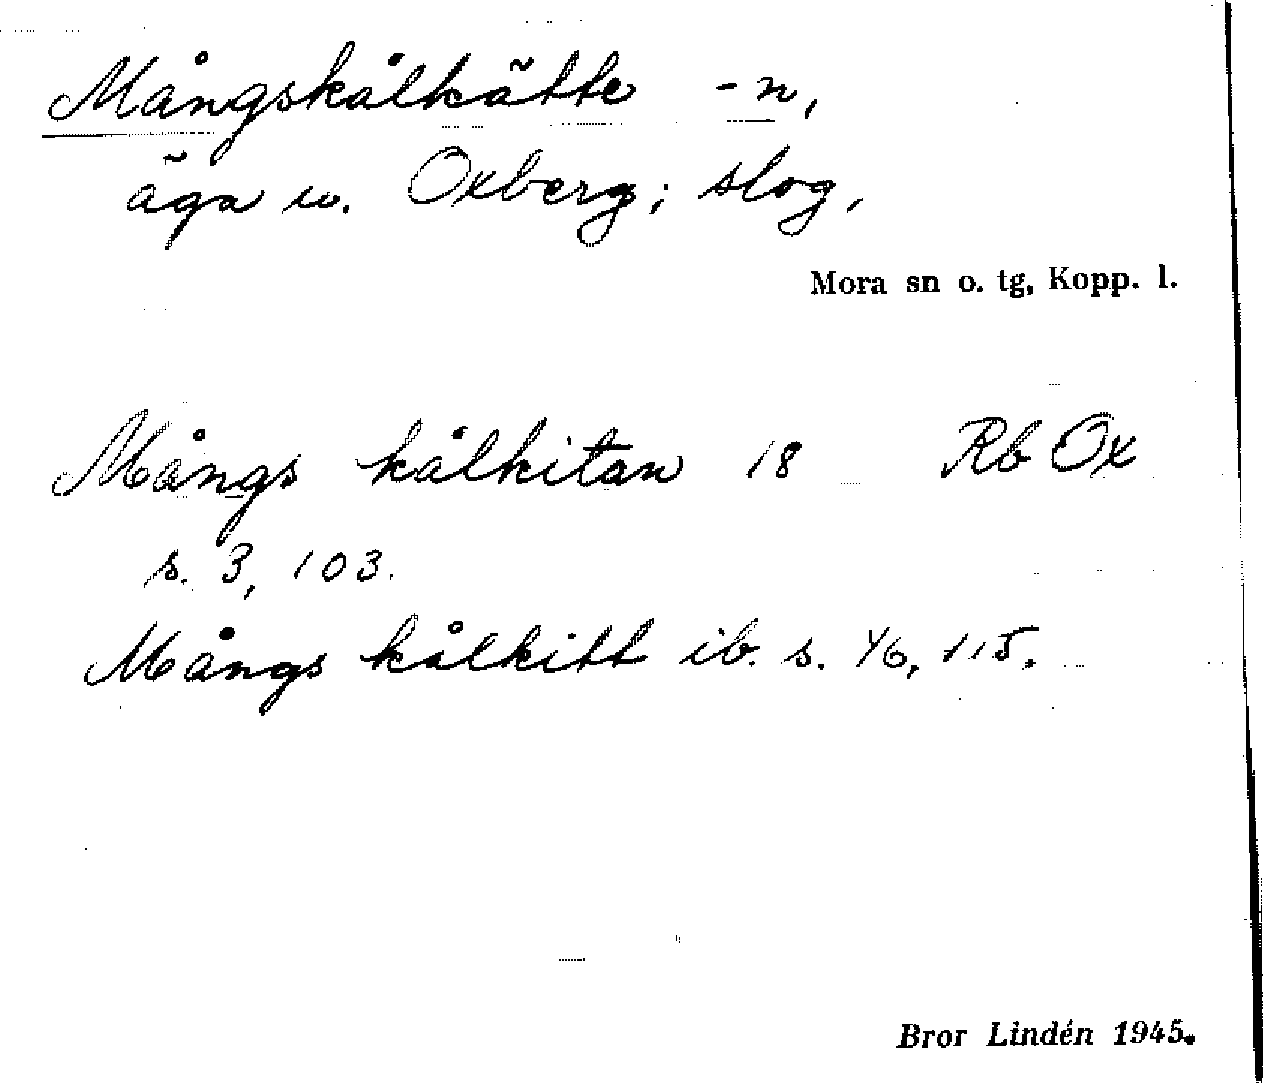 Mångskålkätte -n,
äga w. Oxberg; slog,
Mora sn o. tg, Kopp. l.
Mångs kålkitan 18 Rb Ox
s. 3, 103.
Mångs kålkitt ib. s. 46, 115.
Bror Lindén 1945.